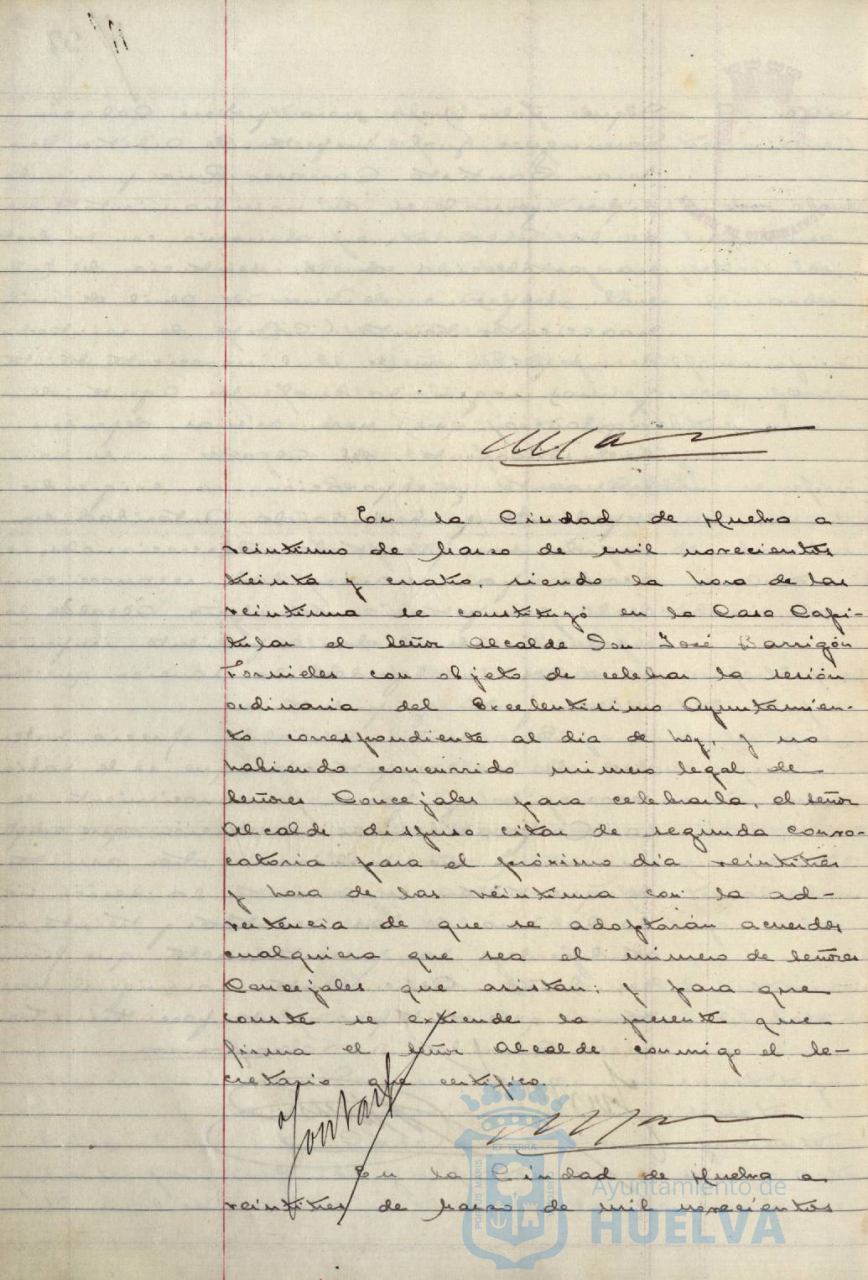 En la Ciudad de Huelva a
veintiuno de marzo de mil novecientos
treinta y cuatro, siendo la hora de las
veintiuna se constituyó en la Casa Capi-
tular el Señor Alcalde Don José Barrigón
Fornieles con objeto de celebrar la sesión
ordinaria del Excelentísimo Ayuntamien-
to correspondiente al día de hoy, y no
habiendo concurrido número legal de
Señores Concejales para celebrarla, el señor
Alcalde dispuso citar de segunda convo-
catoria para el próximo día veintitres
y hora de las veintiuna con la ad-
vertencia de que se adoptarán acuerdos
cualquiera que sea el número de Señores
Concejales que asistan; y para que
conste se extiende la presente que
firma el Señor Alcalde conmigo el Se-
cretario que certifico.
En la Ciudad de Huelva a
veintitres de marzo de mil novecientos
Ayuntamiento de
HUELVA